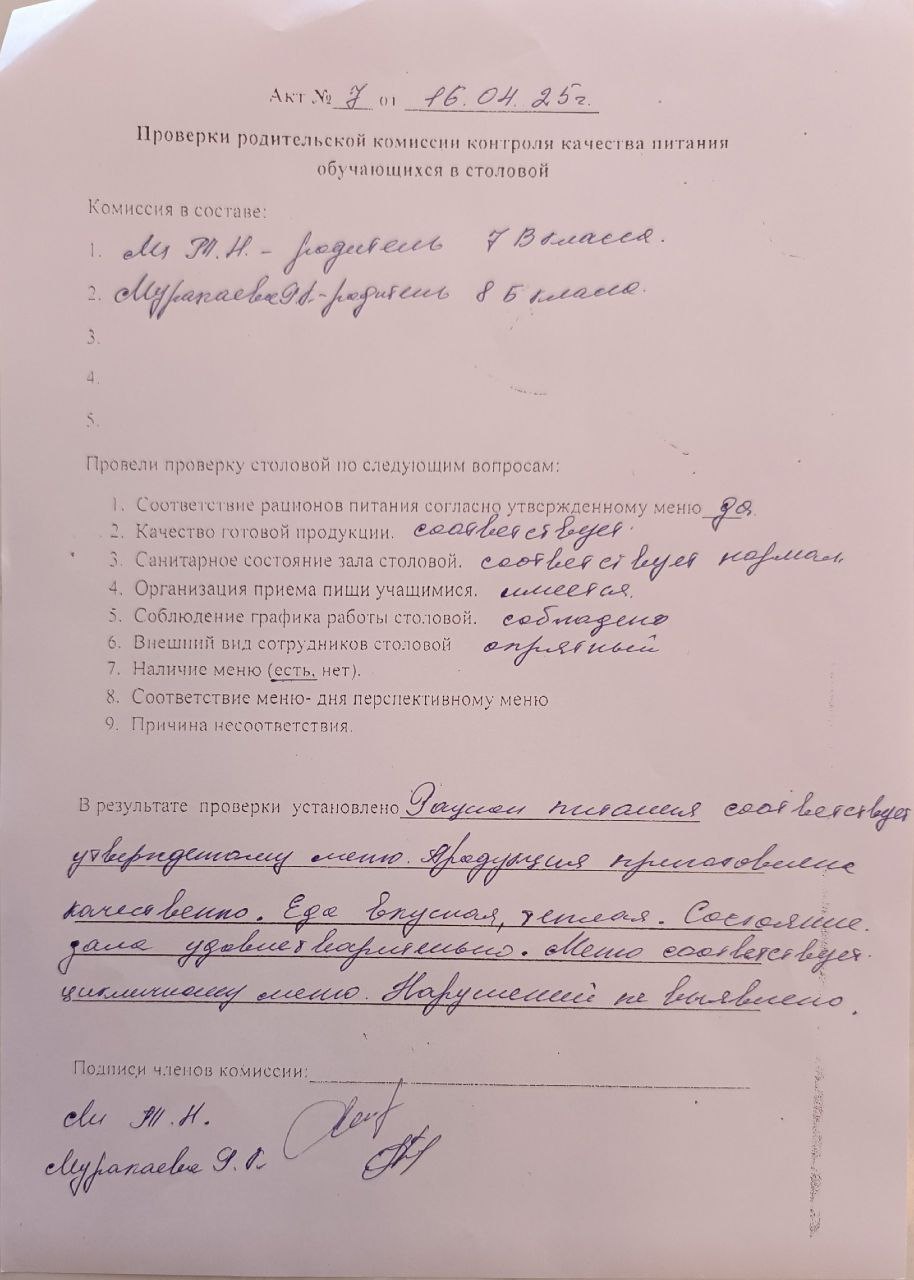 Акт № 7 от 16.04.25г.
Проверки родительской комиссии контроля качества питания
обучающихся в столовой
Комиссия в составе:
1. Ли Т.Н. - родитель 7 В класса.
2. - родитель 8 Б класса.
3.
4.
5.
Провели проверку столовой по следующим вопросам:
1. Соответствие рационов питания согласно утвержденному меню да
2. Качество готовой продукции. соответствует.
3. Санитарное состояние зала столовой. соответствует нормам
4. Организация приема пищи учащимися. имеется.
5. Соблюдение графика работы столовой. соблюдено
6. Внешний вид сотрудников столовой опрятный
7. Наличие меню (есть, нет).
8. Соответствие меню- дня перспективному меню
9. Причина несоответствия.
В результате проверки установлено Рацион питания соответствует
утвержденному меню. Продукция приготовлена
качественно. Еда вкусная, теплая. Состояние
зала удовлетварительно. Меню соответствует
цикличному меню. Нарушений не выявлено.
Подписи членов комиссии:
Ли Т.Н.